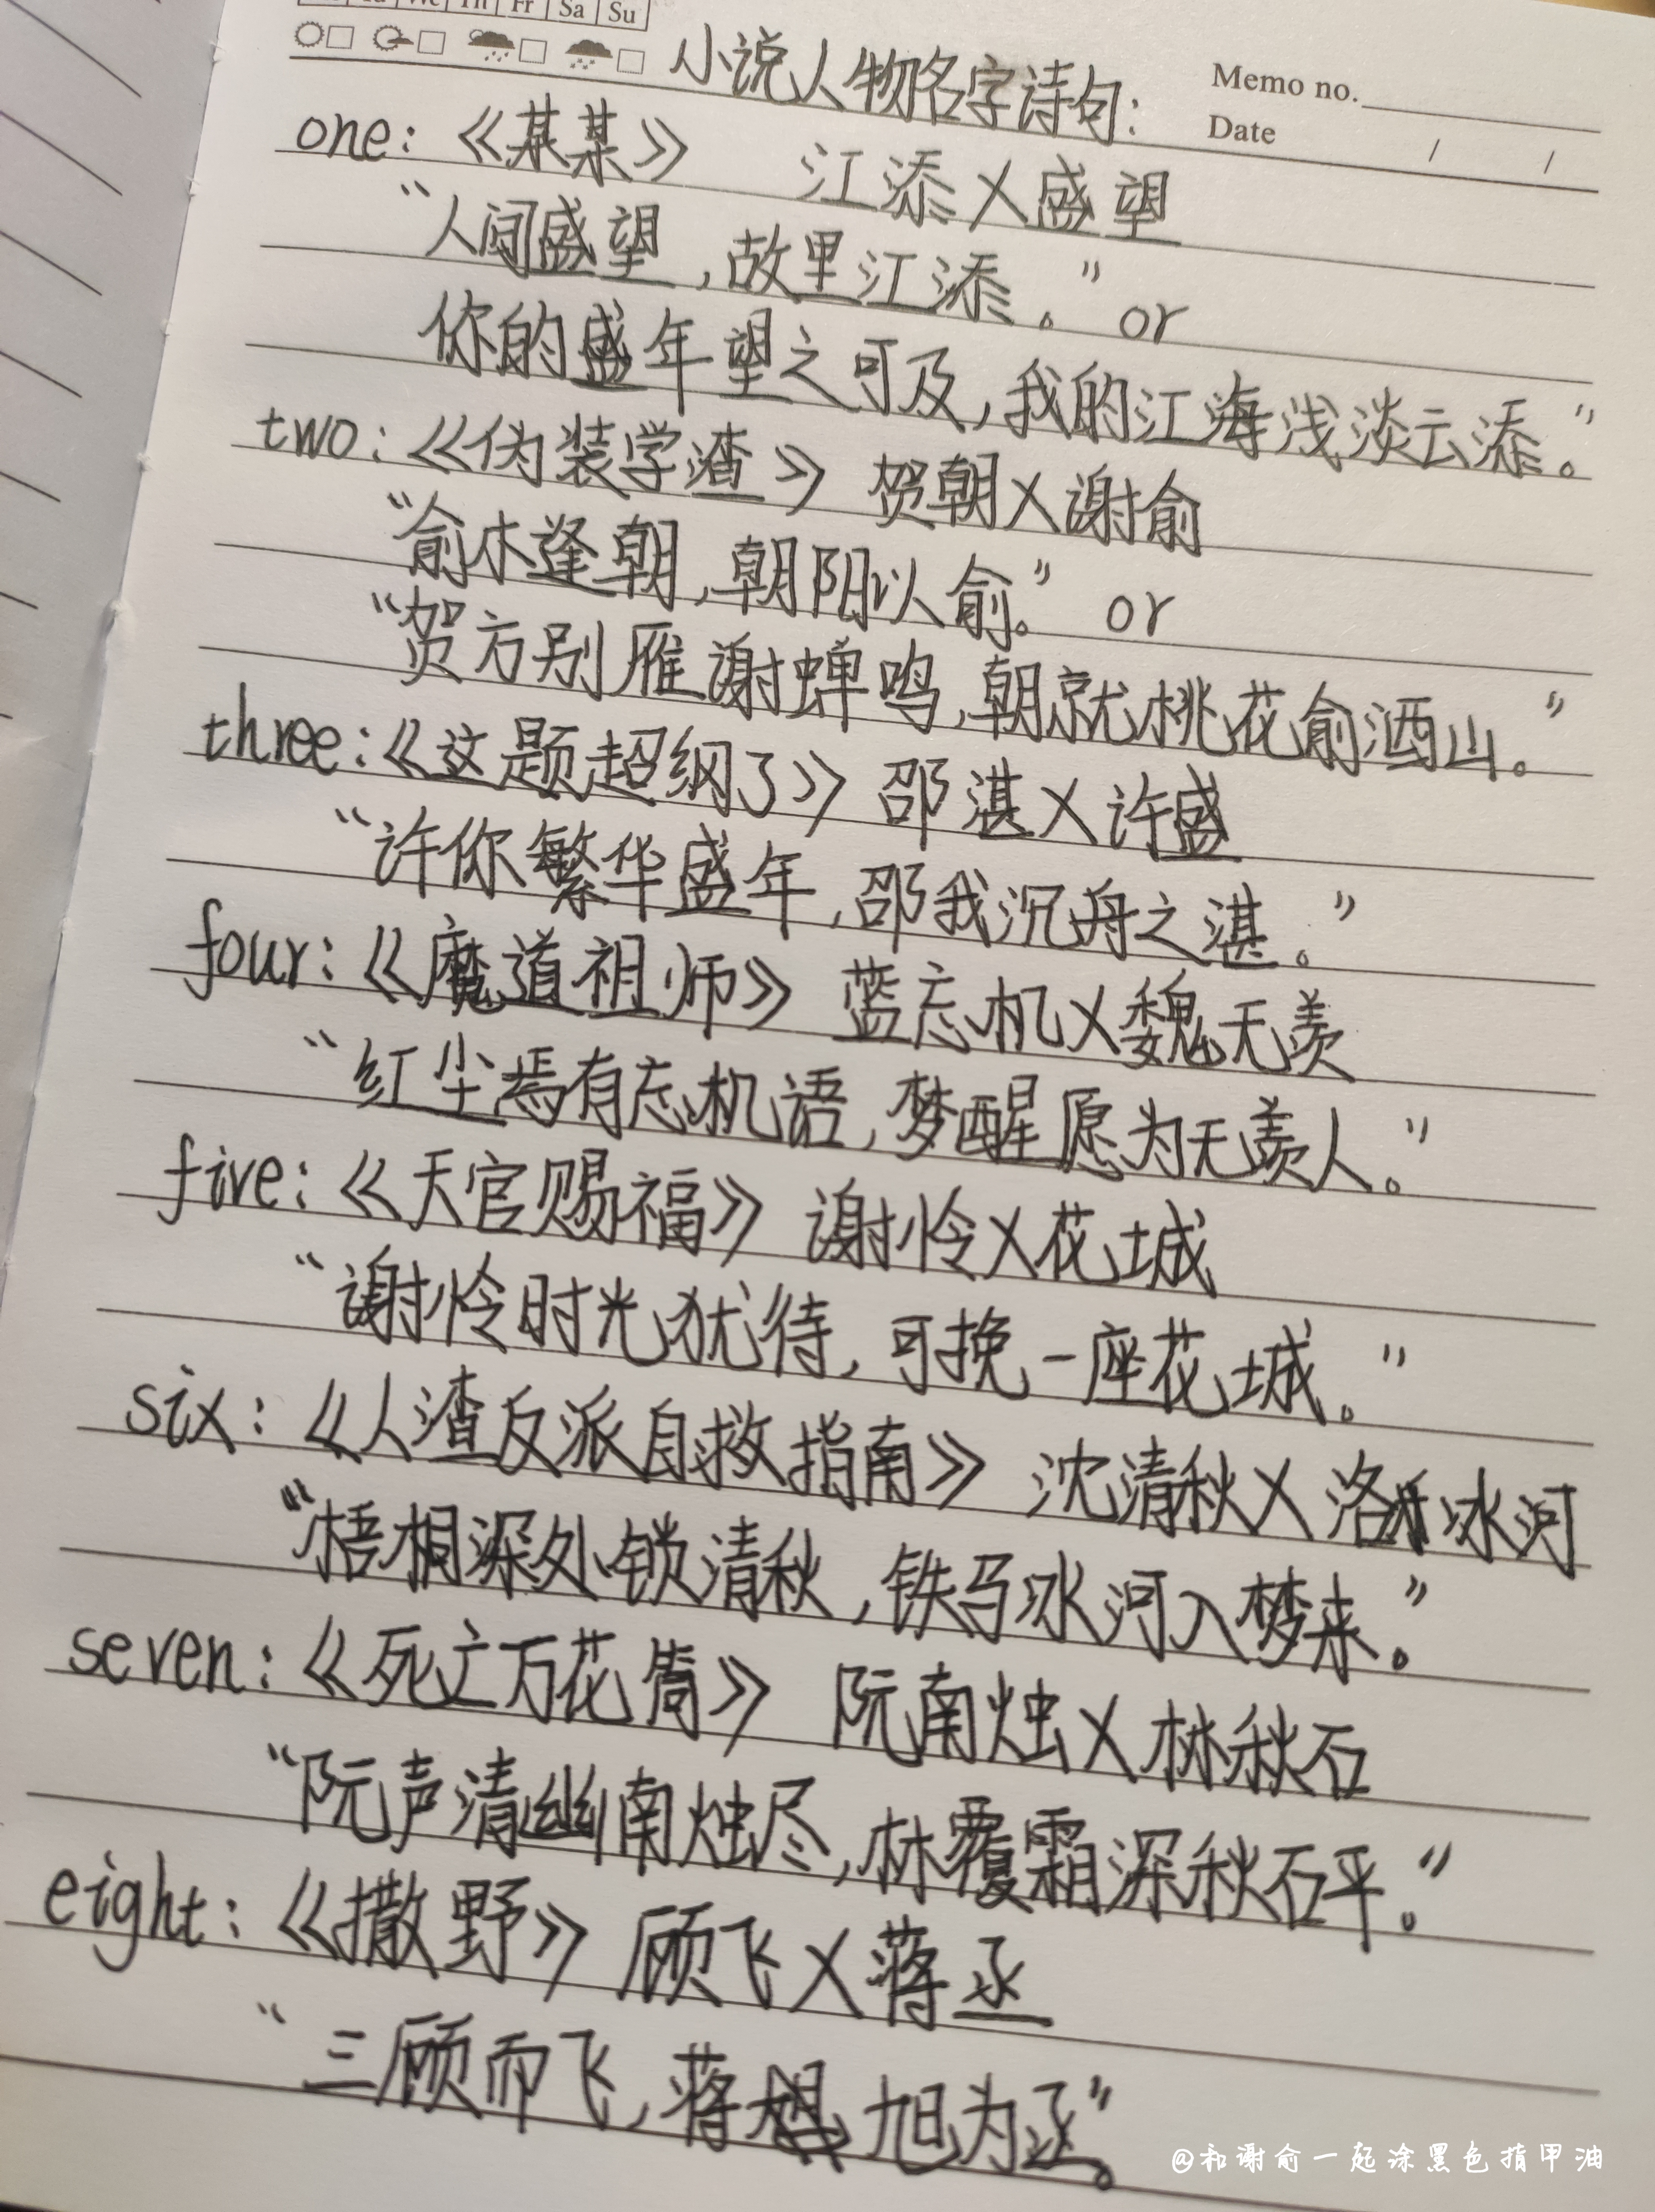 We Th Fr Sa Su
小说人物名字诗句:
Memo no.
Date / /
one:《某某》 江添X盛望
“人间盛望,故里江添。”or
你的盛年望之可及,我的江海浅淡云添。”
two:《伪装学渣》贺朝X谢俞
“俞木逢朝,朝阳以俞。” or
“贺方别雁谢蝉鸣,朝就桃花俞洒山。”
three:《这题超纲了》邵湛X许盛
“许你繁华盛年,邵我沉舟之湛。”
four:《魔道祖师》 蓝忘机X魏无羡
“红尘焉有忘机语,梦醒愿为无羡人。”
five:《天官赐福》 谢怜X花城
“谢怜时光犹待,可挽一座花城。”
six:《人渣反派自救指南》 沈清秋X洛冰河
“梧桐深处锁清秋,铁马冰河入梦来。”
seven:《死亡万花筒》 阮南烛X林秋石
“阮声清幽南烛尽,林覆霜深秋石平。”
eight:《撒野》 顾飞X蒋丞
“三顾而飞,蒋旭为丞。”
@和谢俞一起涂黑色指甲油